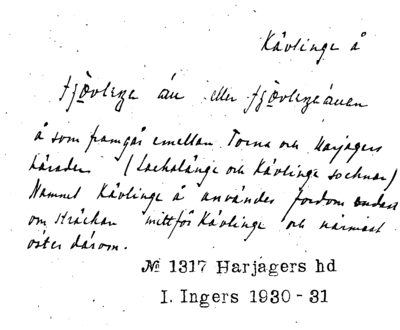 Kävlinge å
fjǫvleŋe án eller fjǫvleŋeánan
å som framgår emellan Torna och Harjagers
härader (Lackalänge och Kävlinge socknar)
Namnet Kävlinge å användes fordom endast
om sträckan mittför Kävlinge och närmast
öster därom.
№ 1317 Harjagers hd
I. Ingers 1930-31